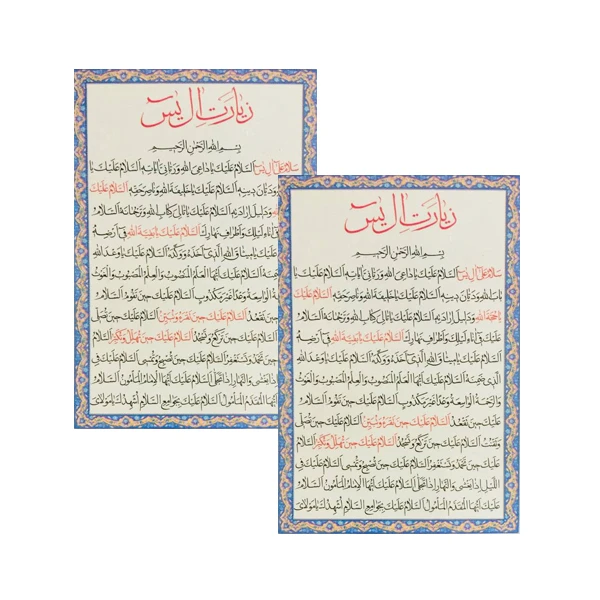 زیارت آل یس
بِسْمِ اللهِ الرَّحْمٰنِ الرَّحیمِ
سَلامٌ عَلی آلِ یس اَلسَّلامُ عَلَیْكَ یا داعِیَ اللهِ وَ رَبّانِیَّ آیاتِهِ اَلسَّلامُ عَلَیْكَ یا
وَ دَیّانَ دینِهِ اَلسَّلامُ عَلَیْكَ یا خَلیفَةَ اللهِ وَ ناصِرَ حَقِّهِ اَلسَّلامُ عَلَیْكَ
وَ دَلیلَ اِرادَتِهِ اَلسَّلامُ عَلَیْكَ یا تالِیَ کِتابِ اللهِ وَ تَرْجُمانَهُ اَلسَّلامُ
فی آناءِ لَیْلِكَ وَ اَطْرافِ نَهارِكَ اَلسَّلامُ عَلَیْكَ یا بَقِیَّةَ اللهِ فی اَرْضِهِ
عَلَیْكَ یا میثاقَ اللهِ الَّذی اَخَذَهُ وَ وَکَّدَهُ اَلسَّلامُ عَلَیْكَ یا وَعْدَ اللهِ
اَلسَّلامُ عَلَیْكَ اَیُّهَا الْعَلَمُ الْمَنْصُوبُ وَ الْعِلْمُ الْمَصْبُوبُ وَ الْغَوْثُ
الْواسِعَةُ وَعْداً غَیْرَ مَکْذُوبٍ اَلسَّلامُ عَلَیْكَ حینَ تَقُومُ اَلسَّلامُ
تَقْعُدُ اَلسَّلامُ عَلَیْكَ حینَ تَقْرَءُ وَ تُبَیِّنُ اَلسَّلامُ عَلَیْكَ حینَ تُصَلّی
اَلسَّلامُ عَلَیْكَ حینَ تَرْکَعُ وَ تَسْجُدُ اَلسَّلامُ عَلَیْكَ حینَ تُهَلِّلُ وَ تُکَبِّرُ اَلسَّلامُ
حینَ تَحْمَدُ وَ تَسْتَغْفِرُ اَلسَّلامُ عَلَیْكَ حینَ تُصْبِحُ وَ تُمْسی اَلسَّلامُ عَلَیْكَ فِی
اِذا یَغْشی وَ النَّهارِ اِذا تَجَلّی اَلسَّلامُ عَلَیْكَ اَیُّهَا الْاِمامُ الْمَأْمُونُ اَلسَّلامُ
اَیُّهَا الْمُقَدَّمُ الْمَأْمُولُ اَلسَّلامُ عَلَیْكَ بِجَوامِعِ السَّلامِ اُشْهِدُكَ یا مَوْلایَ
زیارت آل یس
بِسْمِ اللهِ الرَّحْمٰنِ الرَّحیمِ
سَلامٌ عَلی آلِ یس اَلسَّلامُ عَلَیْكَ یا داعِیَ اللهِ وَ رَبّانِیَّ آیاتِهِ اَلسَّلامُ عَلَیْكَ یا
بابَ اللهِ وَ دَیّانَ دینِهِ اَلسَّلامُ عَلَیْكَ یا خَلیفَةَ اللهِ وَ ناصِرَ حَقِّهِ اَلسَّلامُ عَلَیْكَ
یا حُجَّةَ اللهِ وَ دَلیلَ اِرادَتِهِ اَلسَّلامُ عَلَیْكَ یا تالِیَ کِتابِ اللهِ وَ تَرْجُمانَهُ اَلسَّلامُ
عَلَیْكَ فی آناءِ لَیْلِكَ وَ اَطْرافِ نَهارِكَ اَلسَّلامُ عَلَیْكَ یا بَقِیَّةَ اللهِ فی اَرْضِهِ
اَلسَّلامُ عَلَیْكَ یا میثاقَ اللهِ الَّذی اَخَذَهُ وَ وَکَّدَهُ اَلسَّلامُ عَلَیْكَ یا وَعْدَ اللهِ
الَّذی ضَمِنَهُ اَلسَّلامُ عَلَیْكَ اَیُّهَا الْعَلَمُ الْمَنْصُوبُ وَ الْعِلْمُ الْمَصْبُوبُ وَ الْغَوْثُ
وَ الرَّحْمَةُ الْواسِعَةُ وَعْداً غَیْرَ مَکْذُوبٍ اَلسَّلامُ عَلَیْكَ حینَ تَقُومُ اَلسَّلامُ
عَلَیْكَ حینَ تَقْعُدُ اَلسَّلامُ عَلَیْكَ حینَ تَقْرَءُ وَ تُبَیِّنُ اَلسَّلامُ عَلَیْكَ حینَ تُصَلّی
وَ تَقْنُتُ اَلسَّلامُ عَلَیْكَ حینَ تَرْکَعُ وَ تَسْجُدُ اَلسَّلامُ عَلَیْكَ حینَ تُهَلِّلُ وَ تُکَبِّرُ اَلسَّلامُ
عَلَیْكَ حینَ تَحْمَدُ وَ تَسْتَغْفِرُ اَلسَّلامُ عَلَیْكَ حینَ تُصْبِحُ وَ تُمْسی اَلسَّلامُ عَلَیْكَ فِی
اللَّیْلِ اِذا یَغْشی وَ النَّهارِ اِذا تَجَلّی اَلسَّلامُ عَلَیْكَ اَیُّهَا الْاِمامُ الْمَأْمُونُ اَلسَّلامُ
عَلَیْكَ اَیُّهَا الْمُقَدَّمُ الْمَأْمُولُ اَلسَّلامُ عَلَیْكَ بِجَوامِعِ السَّلامِ اُشْهِدُكَ یا مَوْلایَ